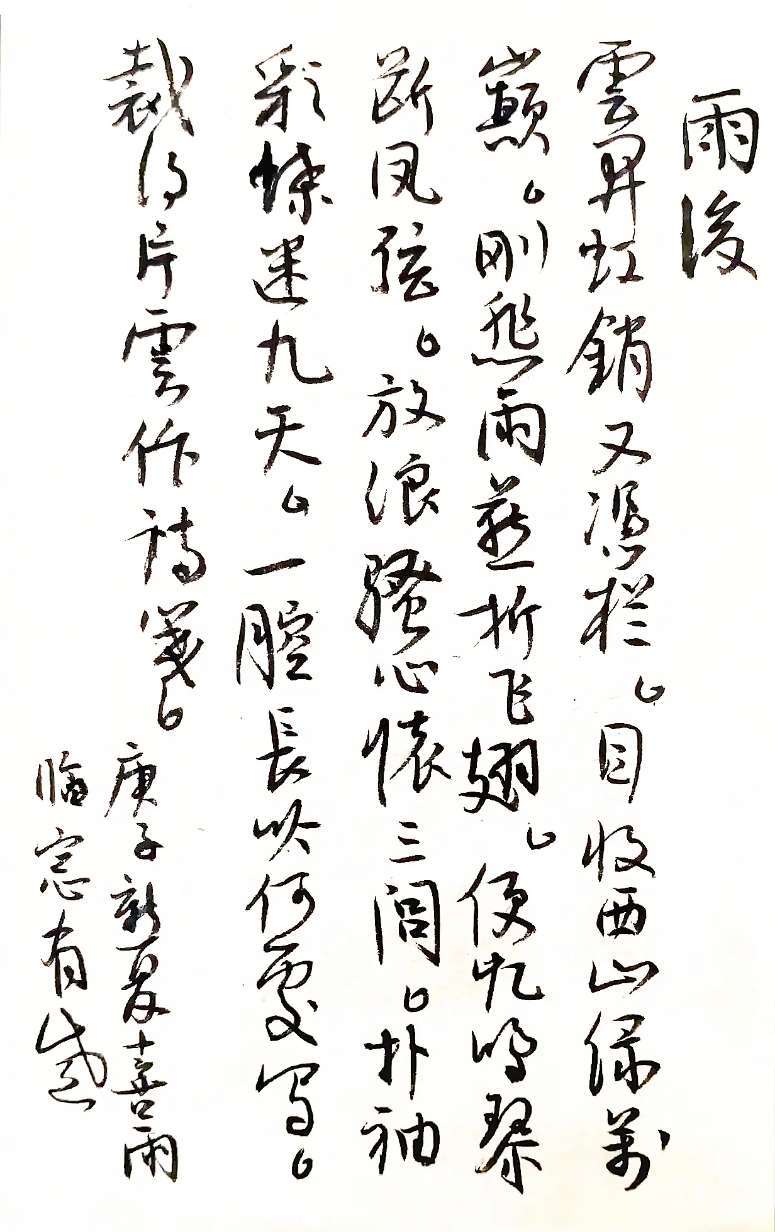 雨後
雲昇虹銷又憑栏。目收西山绿万
巅。刚愁雨燕折飞翅。便忆鸣琴
断凤弦。放浪骚心懷三闾。扑袖
彩蝶迷九天。一腔長吟何處写。
裁得片雲作诗笺。
庚子新夏喜雨
临窗有感